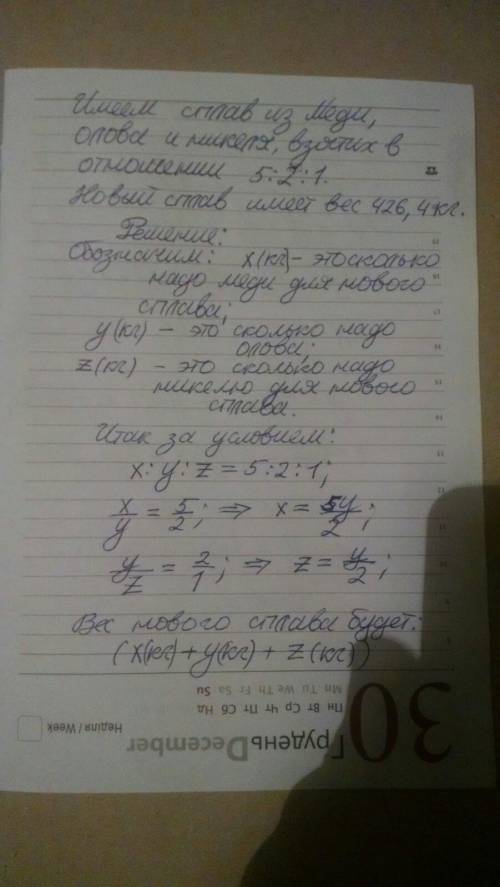 Имеем сплав из меди,
олова и никеля, взятых в
отношении 5:2:1.
Новый сплав имеет вес 426,4 кг.
Решение:
Обозначим: x(кг) - это сколько
надо меди для нового
сплава;
y(кг) - это сколько надо
олова;
z(кг) - это сколько надо
никелю для нового
сплава.
Итак за условием:
x:y:z = 5:2:1;
x/y = 5/2; ⇒ x = 5y/2;
y/z = 2/1; ⇒ z = y/2;
Вес нового сплава будет:
(x(кг)+y(кг)+z(кг))
Mn Tu We Th Fr Sa Su
Пн Вт Ср Чт Пт Сб Нд
30
Грудень December
Неділя / Week